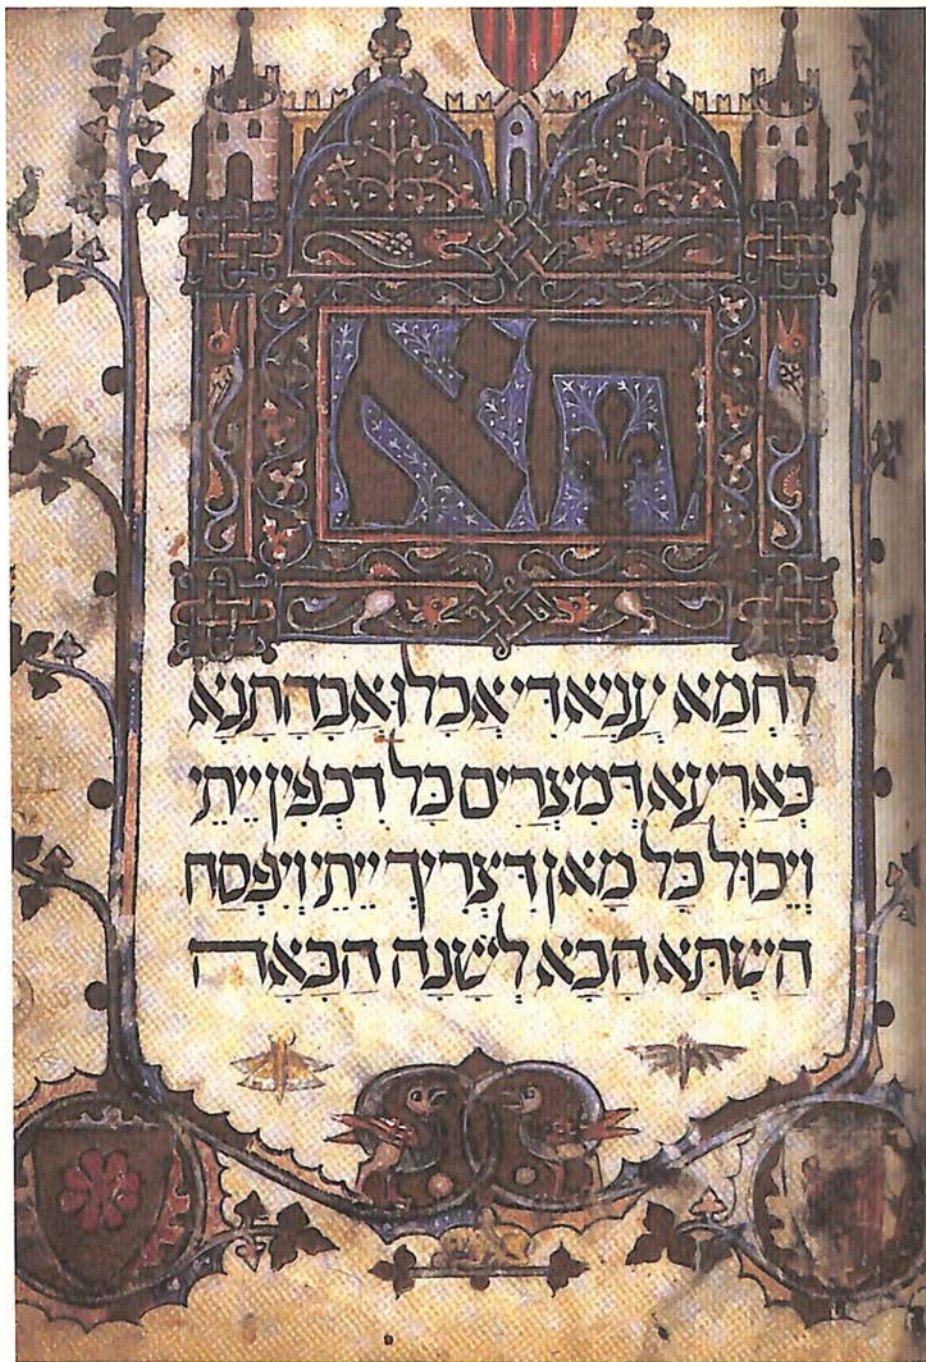 הא
לַחְמָא עַנְיָא דִּי אֲכַלוּ אֲבָהָתַנָא
בְּאַרְעָא דְּמִצְרַיִם כָּל דִּכְפִין יֵיתֵי
וְיֵכוּל כָּל מָאן דִּצְרִיךְ יֵיתֵי וְיִפְסַח
הָשַׁתָּא הָכָא לְשָׁנָה הַבָּאָה